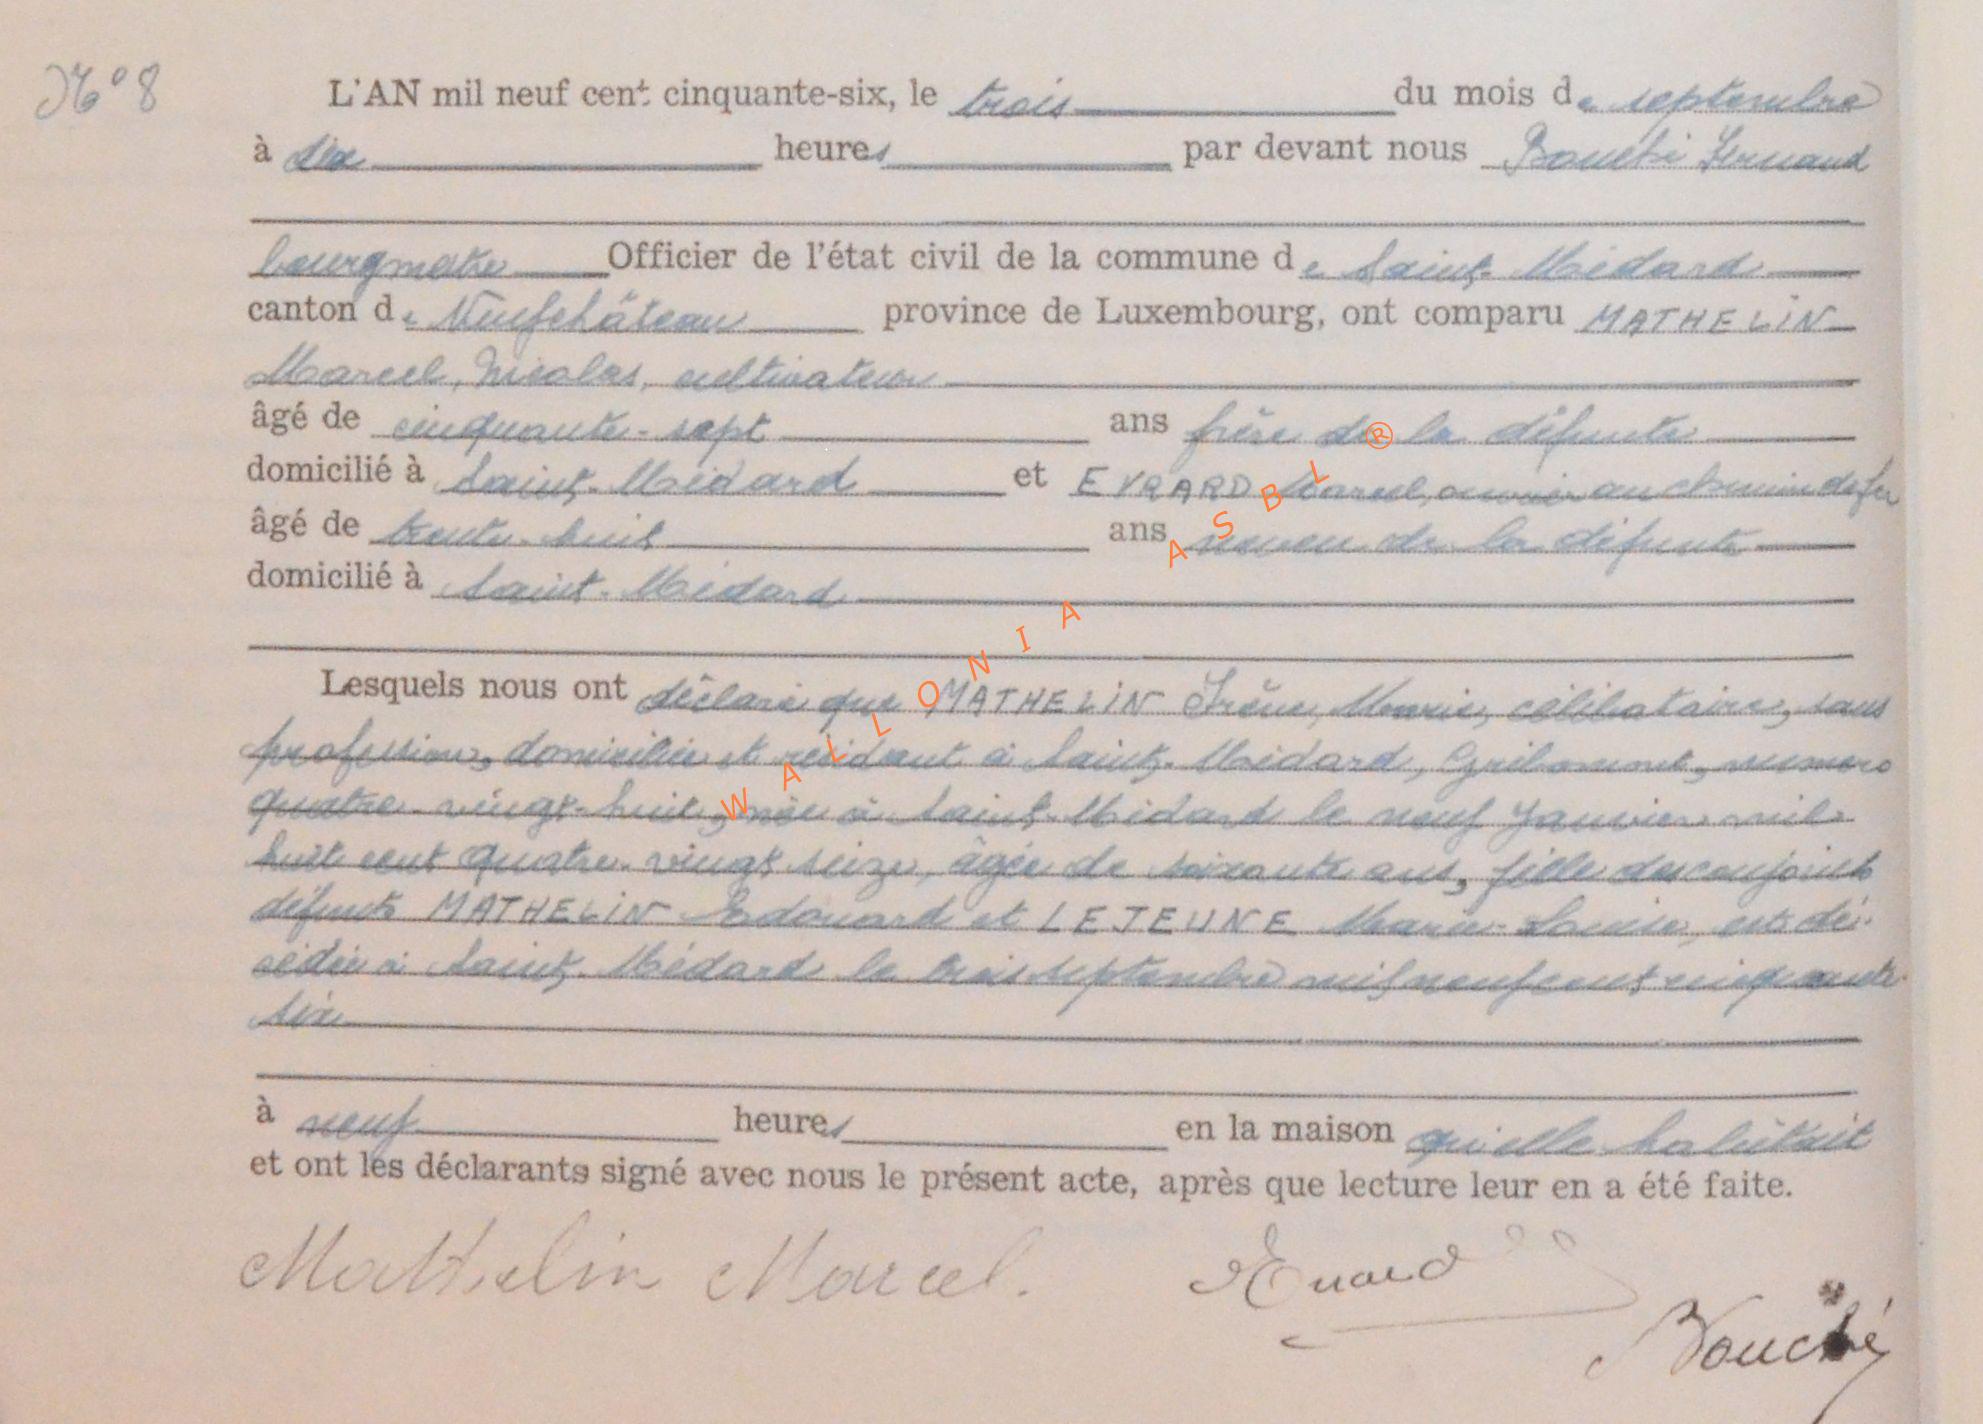 N° 8
L'AN mil neuf cent cinquante-six, le trois du mois de septembre
à dix heures par devant nous Bouché Fernand
bourgmestre Officier de l'état civil de la commune de Saint-Médard
canton de Neufchâteau province de Luxembourg, ont comparu MATHELIN
Marcel, Nicolas, cultivateur
âgé de cinquante-sept ans frère de la défunte
domicilié à Saint-Médard et EVRARD Marcel, ouvrier au chemin de fer
âgé de trente-huit ans neveu de la défunte
domicilié à Saint-Médard
Lesquels nous ont déclaré que MATHELIN Irène, Marie, célibataire, sans
profession, domiciliée et résidant à Saint-Médard, Gribomont, numéro
quatre-vingt-huit, née à Saint-Médard le neuf janvier mil
huit cent quatre-vingt seize, âgée de soixante ans, fille des conjoints
défunts MATHELIN Edouard et LEJEUNE Marie-Louise, est dé-
cédée à Saint-Médard le trois septembre mil neuf cent cinquante-
six
à neuf heures en la maison qu'elle habitait
et ont les déclarants signé avec nous le présent acte, après que lecture leur en a été faite.
Mathelin Marcel. Evrard
Bouché
WALLONIA ASBL ®